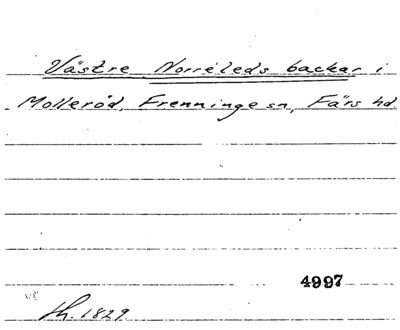 Västre Norreleds backar i
Molleröd, Frenninge sn, Färs hd
4997
th. 1829.